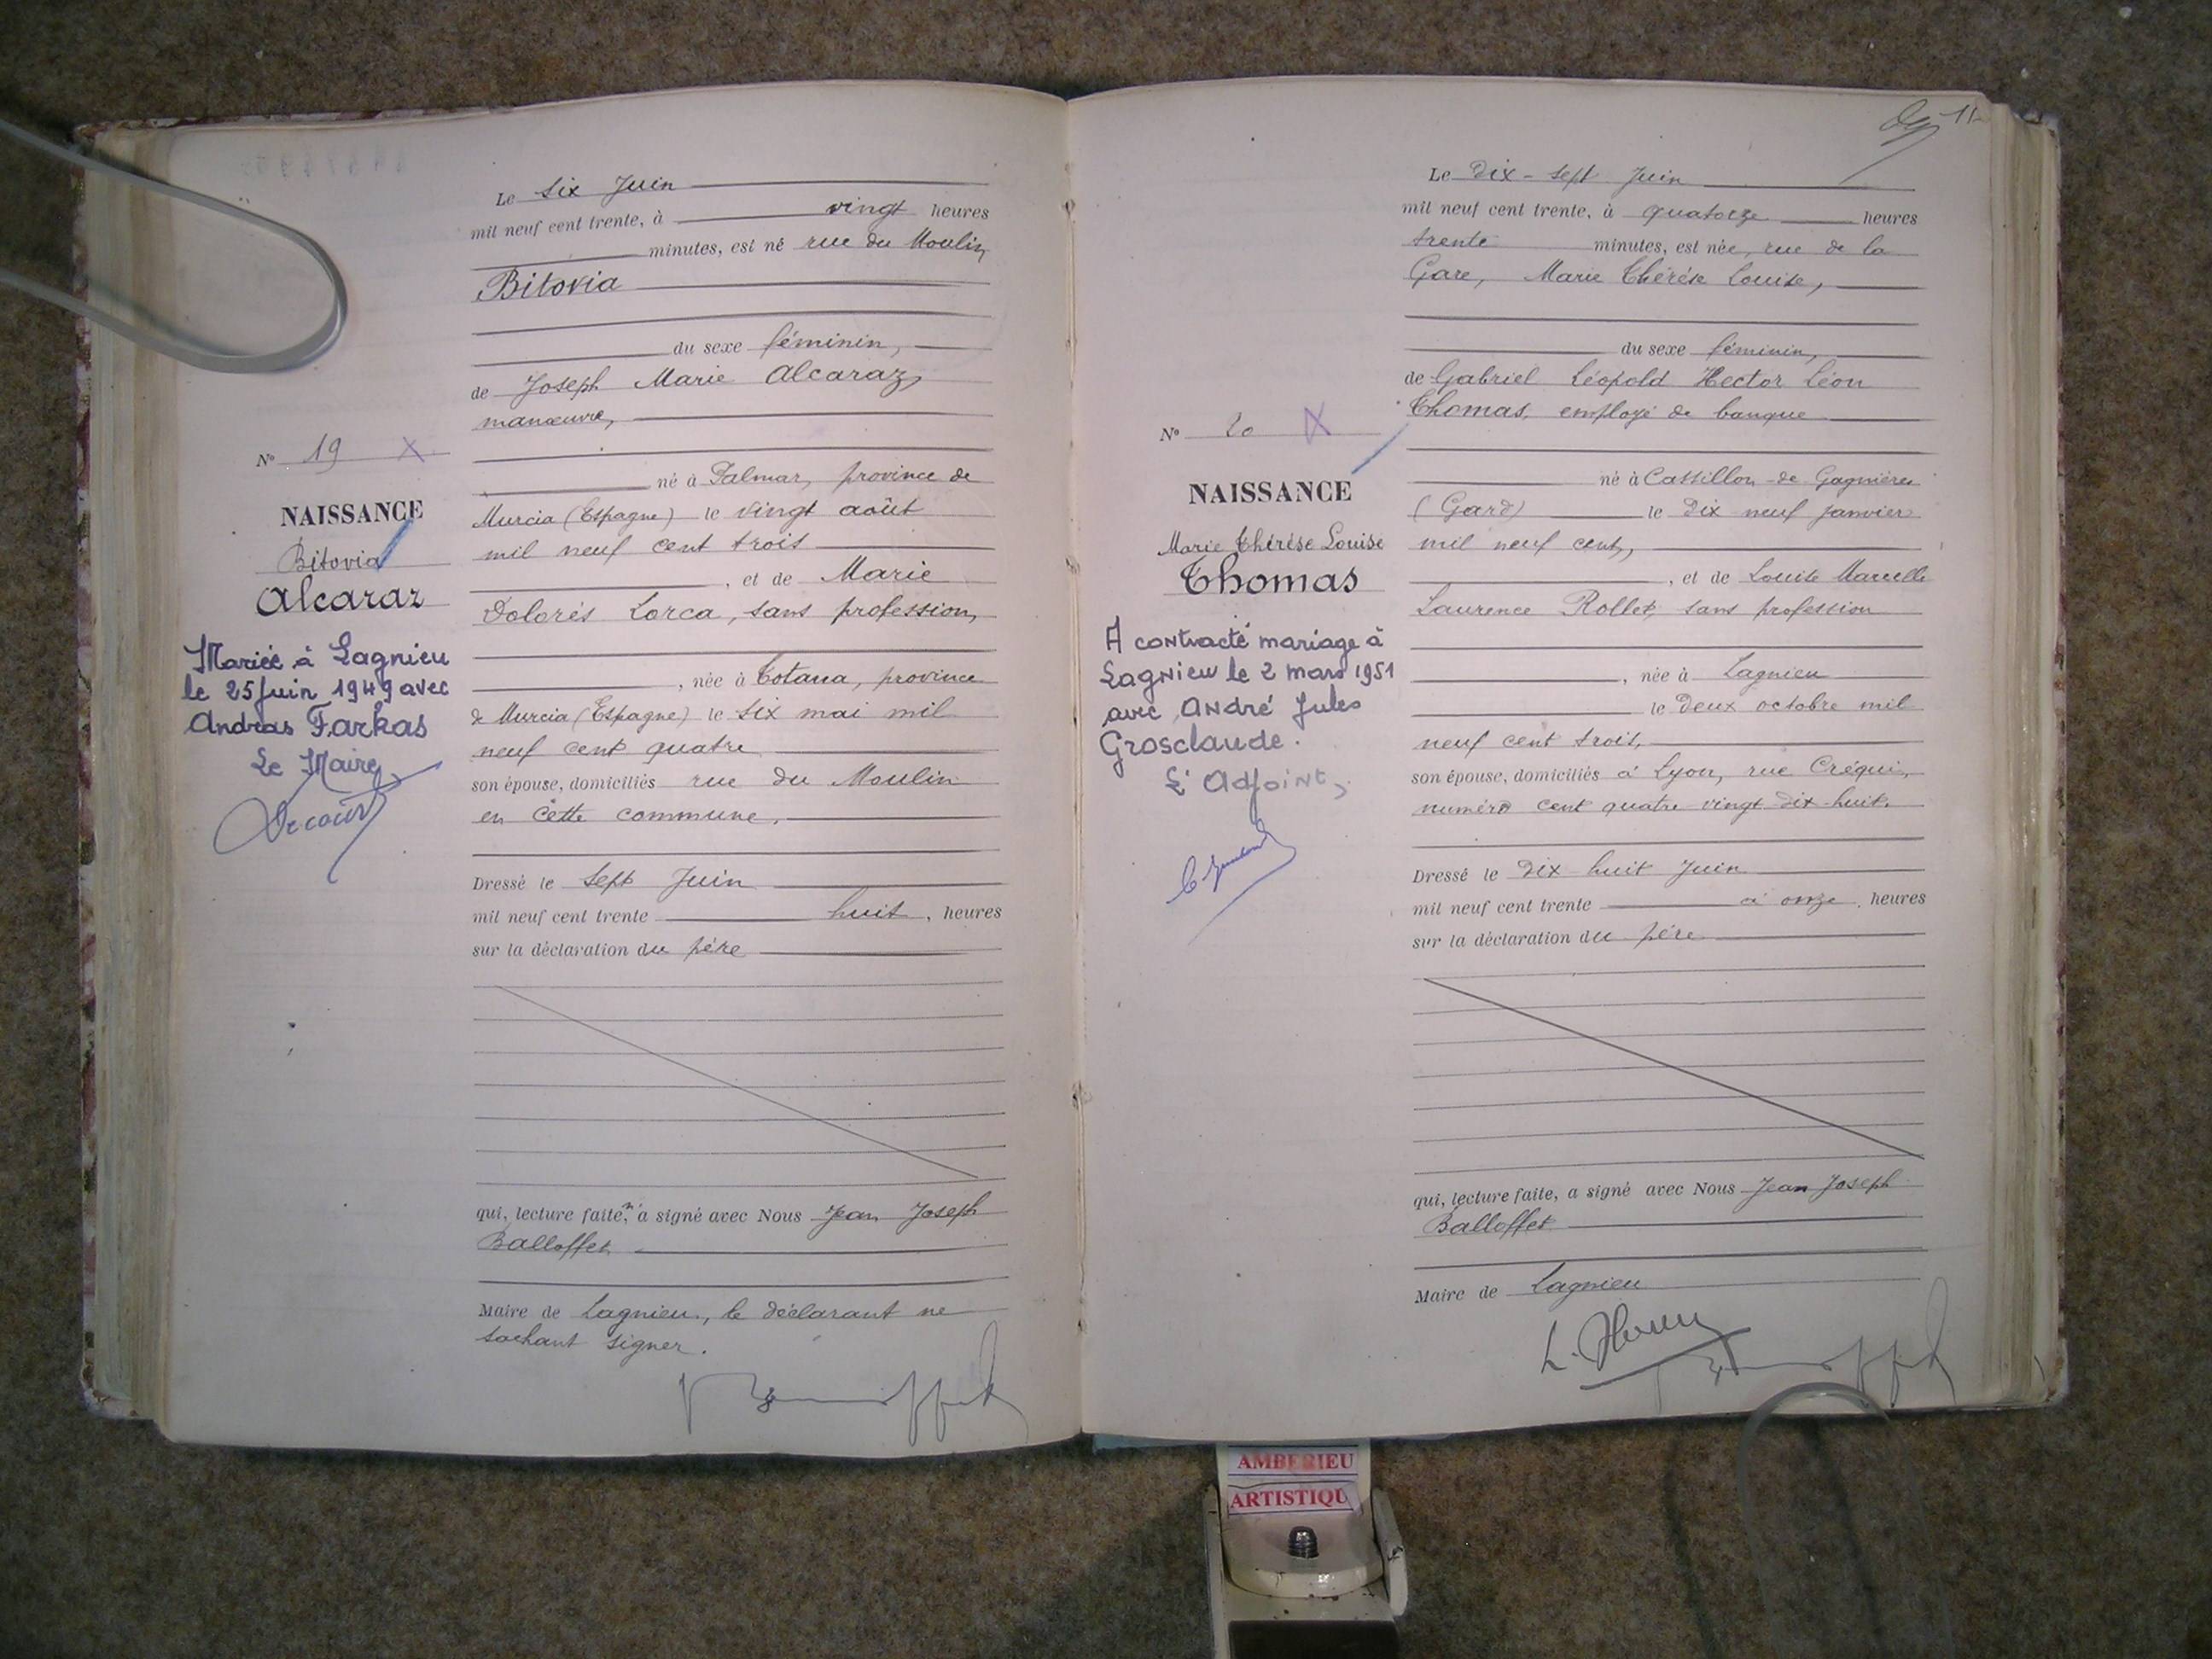 Le six Juin
mil neuf cent trente, à vingt heures
minutes, est né rue du Moulin,
Bitovia
du sexe féminin,
de Joseph Marie Alcaraz,
manœuvre,
né à Palmar, province de
Murcia (Espagne) le vingt août
mil neuf cent trois
, et de Marie
Dolorès Lorca, sans profession,
, née à Totana, province
de Murcia (Espagne) le six mai mil
neuf cent quatre
son épouse, domiciliés rue du Moulin
en cette commune.
Dressé le sept Juin
mil neuf cent trente huit, heures
sur la déclaration du père
qui, lecture faite, n'a signé avec Nous Jean Joseph
Balloffet
Maire de Lagnieu, le déclarant ne
sachant signer.
No 19 X
NAISSANCE
Bitovia
Alcaraz
Mariée à Lagnieu
le 25 juin 1949 avec
Andras Farkas
Le Maire
11
Le Dix-sept Juin
mil neuf cent trente, à quatorze heures
trente minutes, est née, rue de la
Gare, Marie Thérèse Louise,
du sexe féminin,
de Gabriel Léopold Hector Léon
Thomas, employé de banque
né à Castillon-de Gagnières
(Gard) le Dix neuf janvier
mil neuf cent,
, et de Louise Marcelle
Laurence Rollet, sans profession
, née à Lagnieu
le Deux octobre mil
neuf cent trois,
son épouse, domiciliés à Lyon, rue Créqui,
numéro cent quatre vingt dix-huit.
Dressé le Dix huit Juin
mil neuf cent trente à onze, heures
sur la déclaration du père
qui, lecture faite, a signé avec Nous Jean Joseph
Balloffet
Maire de Lagnieu
No 20 X
NAISSANCE
Marie Thérèse Louise
Thomas
A contracté mariage à
Lagnieu le 2 mars 1951
avec André Jules
Grosclaude.
L'Adjoint,
AMBERIEU
ARTISTIQU